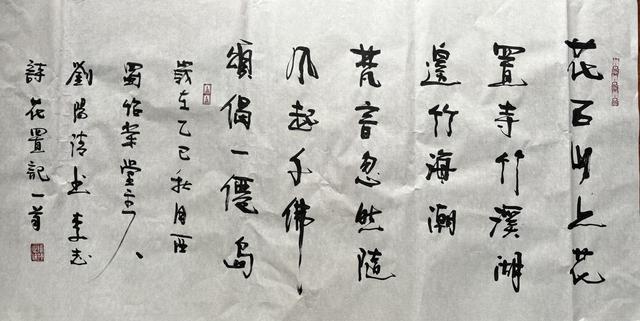 花石山上花
置寺竹溪湖
邊竹海潮
梵音忽然隨
风起千佛
頌偈一僊島
歲在乙巳秋月西
蜀怡堂主人
劉陽清书李志
詩花置記一首